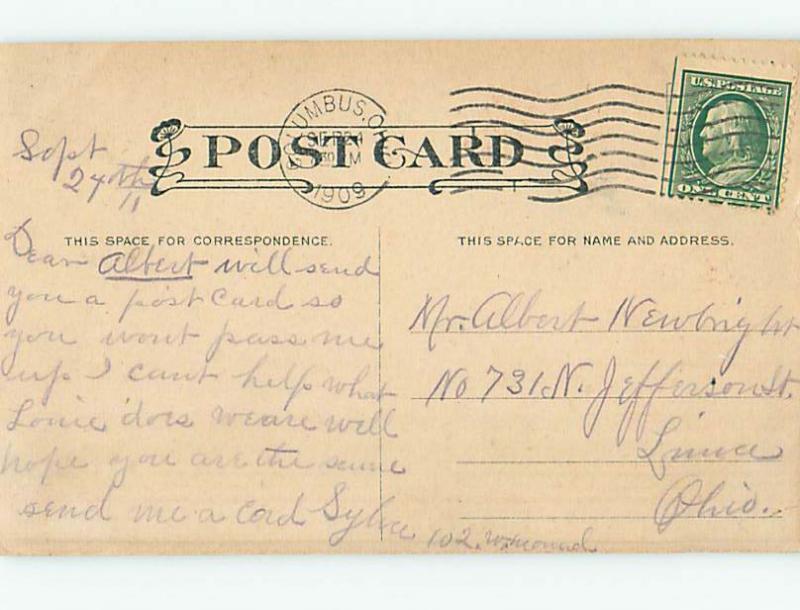 Sept
24th
COLUMBUS, O.
1909
U.S. POSTAGE
ONE CENT
POST CARD
THIS SPACE FOR CORRESPONDENCE.
Dear Albert will send
you a post card so
you wont pass me
up I cant help what
Louie does we are well
hope you are the same
send me a card
THIS SPACE FOR NAME AND ADDRESS.
Mr. Albert Newbright
No 731 N. Jefferson St.
Lima
Ohio.
102